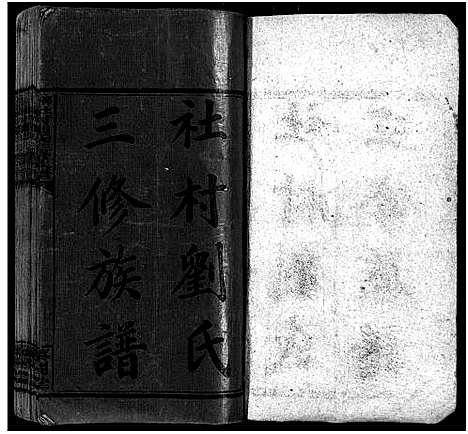 社村劉氏
三修族譜